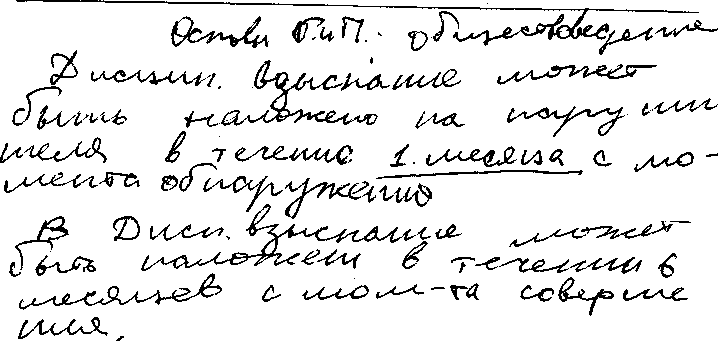 Основы Г.и П. - обществоведение
Дисцип. взыскание может
быть наложено на наруши
теля в течение 1. месяца с мо-
мента обнаружения
В Дисц. взыскание может
быть наложен в течении 6
месяцев с мом-та соверше
ния.